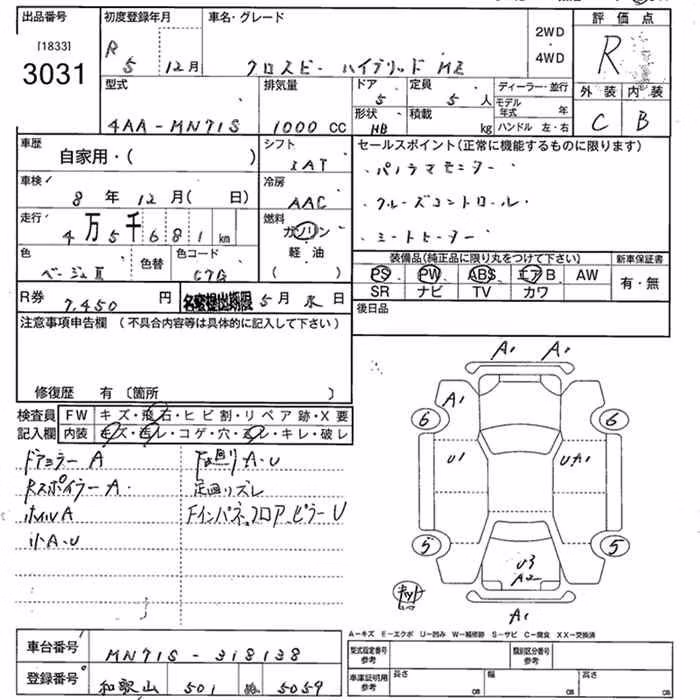 出品番号
[1833]
3031
初度登録年月
R5 12月
車名・グレード
クロスビー ハイブリッド MZ
2WD
・
4WD
評価点
R
外装 内装
C B
型式
4AA-MN71S
排気量
1000 CC
ドア
5
定員
5 人
形状
HB
積載
kg
ディーラー・並行
モデル年式 年
ハンドル 左・右
車歴
自家用・( )
シフト
IAT
車検
8年12月( 日)
冷房
AAC
走行
4万5千681km
燃料
ガソリン
軽油
( )
色
ベージュII
色替
色コード
C7G
セールスポイント(正常に機能するものに限ります)
・パノラマモニター
・クルーズコントロール
・シートヒーター
装備品(純正品に限り丸をつけて下さい)
PS PW ABS エアB AW
SR ナビ TV カワ
新車保証書
有・無
R券
7,450 円
名変提出期限 5月末日
後日品
注意事項申告欄 (不具合内容等は具体的に記入して下さい)
修復歴 有〔箇所 〕
検査員記入欄
FW キズ・飛石・ヒビ割・リペア跡・X要
内装 キズ・汚レ・コゲ・穴・スレ・キレ・破レ
ドアミラーA
RスポイラーA
ホイルA
小A・U
下回リA・U
足回リズレ
Fインパネ、フロア、ピラーU
A1 A1
A1
6 6
U1 UA1
5 5
U3
A2
A1
A-キズ E-エクボ U-凹み W-補修跡 S-サビ C-腐食 XX-交換済
車台番号
MN71S-318138
登録番号
和歌山 501 5059
型式指定番号
参考
類別区分番号
参考
車庫証明用
参考
長さ cm
幅 cm
高さ cm